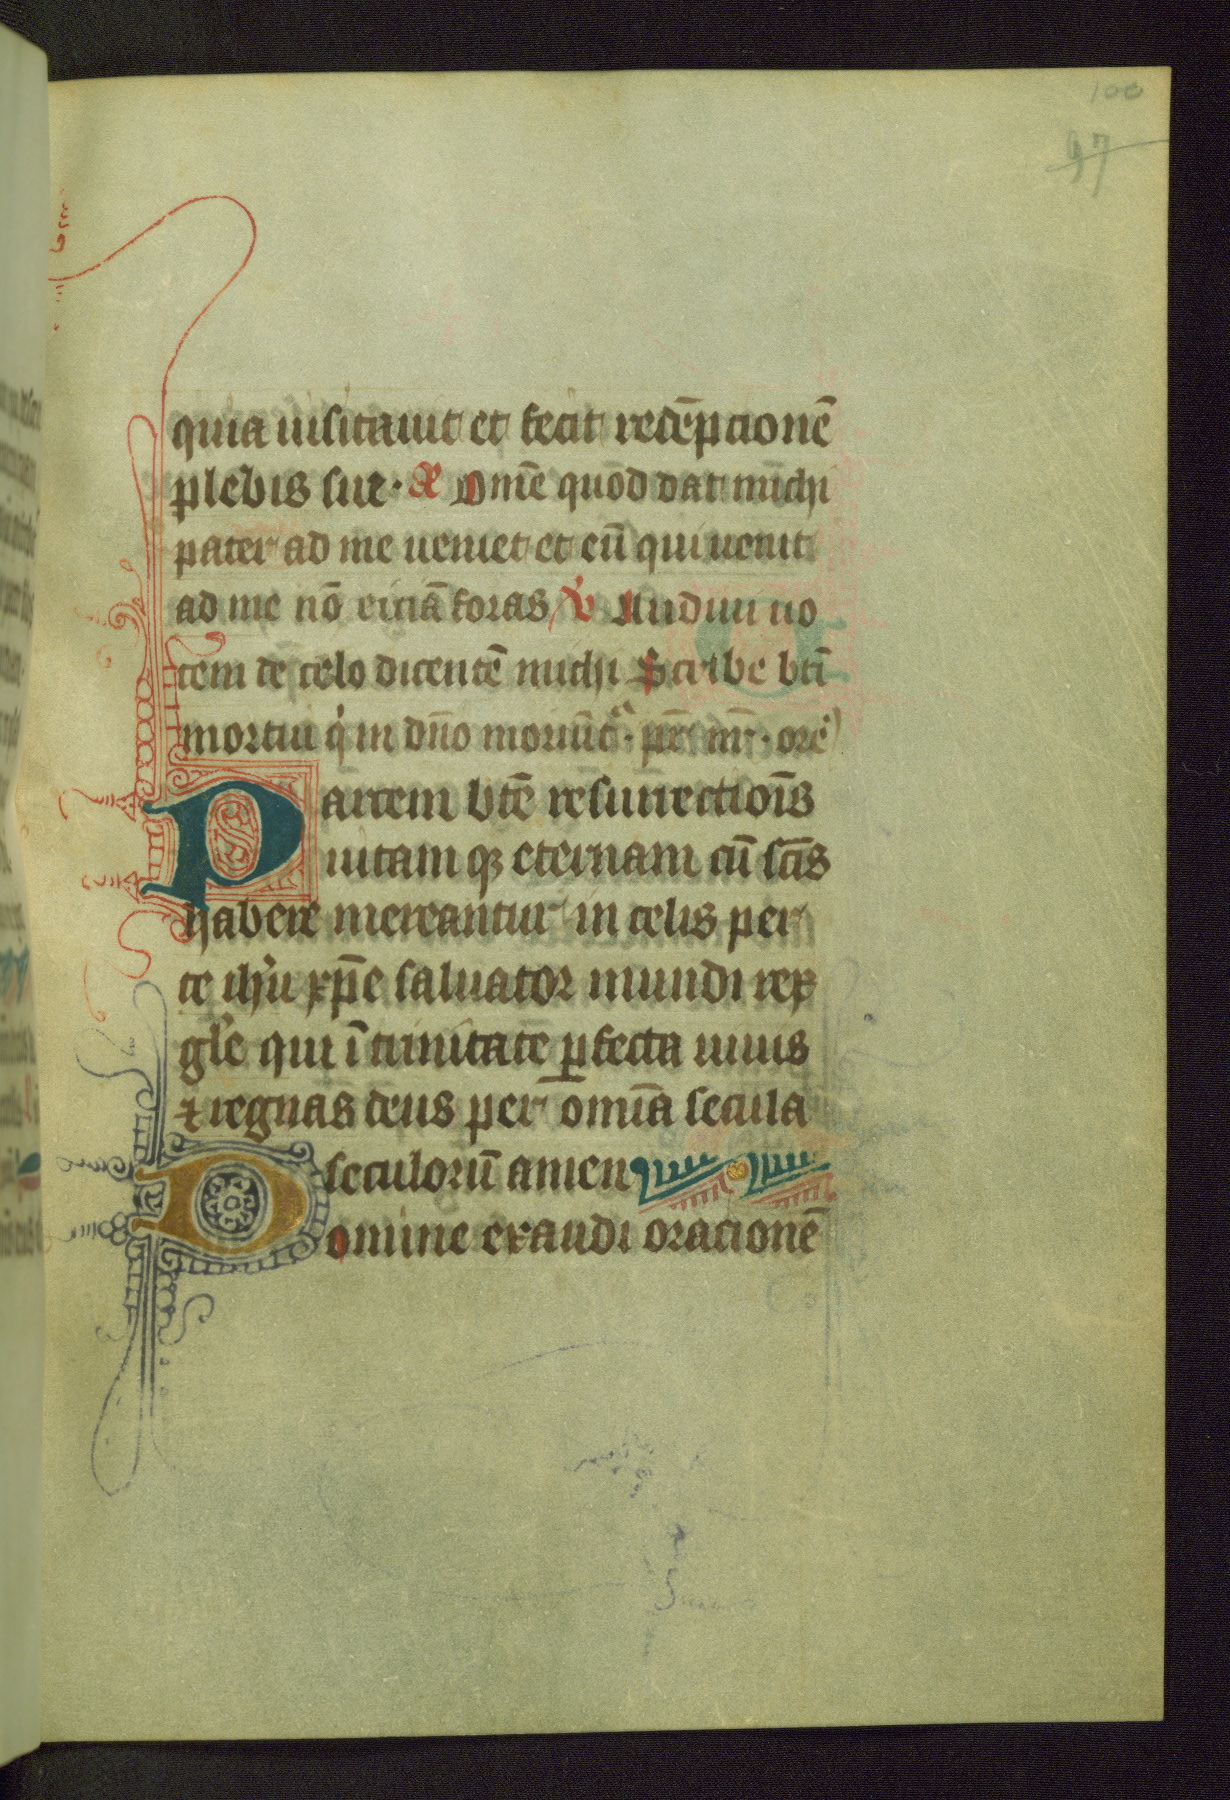 100
97
quia uisitauit et fecit redēpcionē
plebis sue· a͞ Omē quod dat michi
pater ad me ueniet et eū qui uenit
ad me nō eiciā foras v̓ Audiui uo
cem de celo dicentē michi Scribe bti̅
mortui q̇ in dn̄o moriūtᷓ· pr̄ nr̄· ore̅
Partem btē resurrectiōis
uitamqꝫ eternam cū sc̄is
habere mereantur in celis per
te ihū xp̄e saluator mundi rex
gl̄e qui ī trinitate ꝑfecta uiuis
⁊ regnas deus per omīa secula
seculorū amen
Domine exaudi oracionē